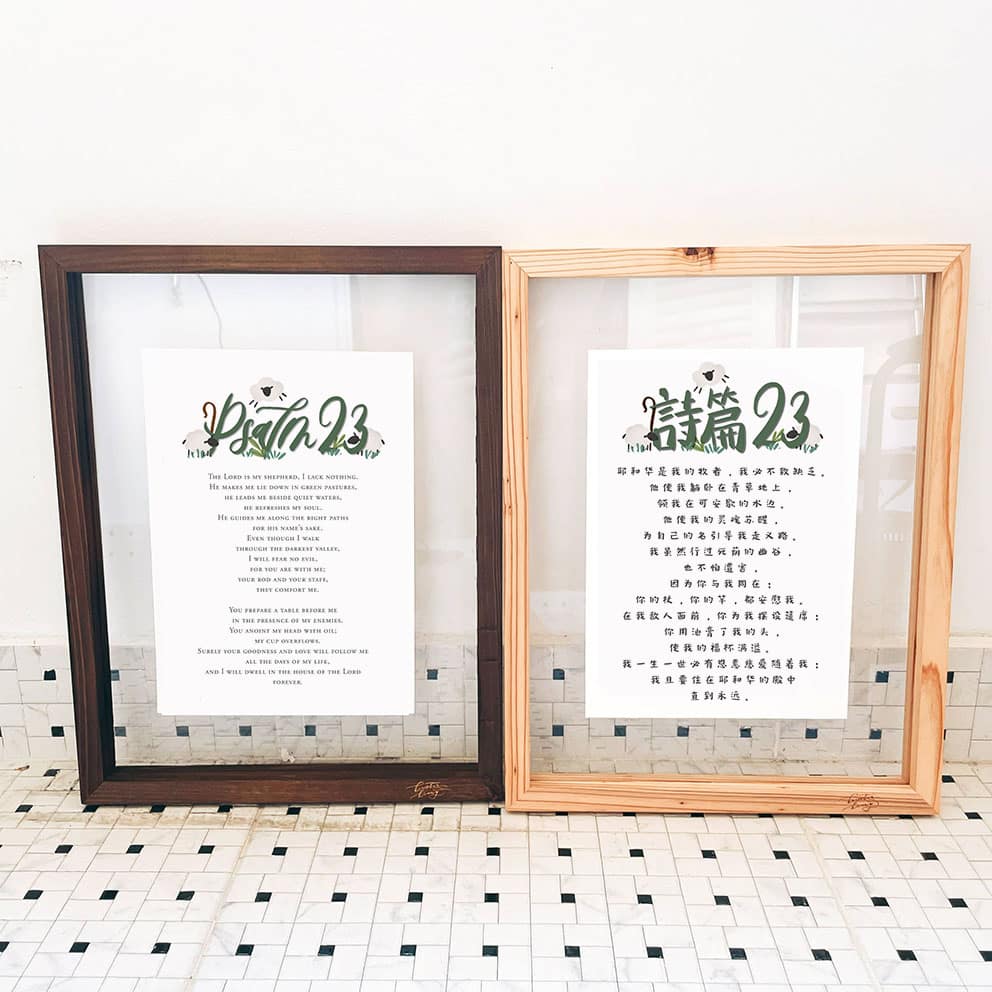 Psalm 23
The Lord is my shepherd, I lack nothing.
He makes me lie down in green pastures,
he leads me beside quiet waters,
he refreshes my soul.
He guides me along the right paths
for his name's sake.
Even though I walk
through the darkest valley,
I will fear no evil,
for you are with me;
your rod and your staff,
they comfort me.
You prepare a table before me
in the presence of my enemies.
You anoint my head with oil;
my cup overflows.
Surely your goodness and love will follow me
all the days of my life,
and I will dwell in the house of the Lord
forever.
詩篇23
耶和华是我的牧者,我必不致缺乏。
他使我躺卧在青草地上,
领我在可安歇的水边。
他使我的灵魂苏醒,
为自己的名引导我走义路。
我虽然行过死荫的幽谷,
也不怕遭害,
因为你与我同在;
你的杖,你的竿,都安慰我。
在我敌人面前,你为我摆设筵席;
你用油膏了我的头,
使我的福杯满溢。
我一生一世必有恩惠慈爱随着我;
我且要住在耶和华的殿中
直到永远。